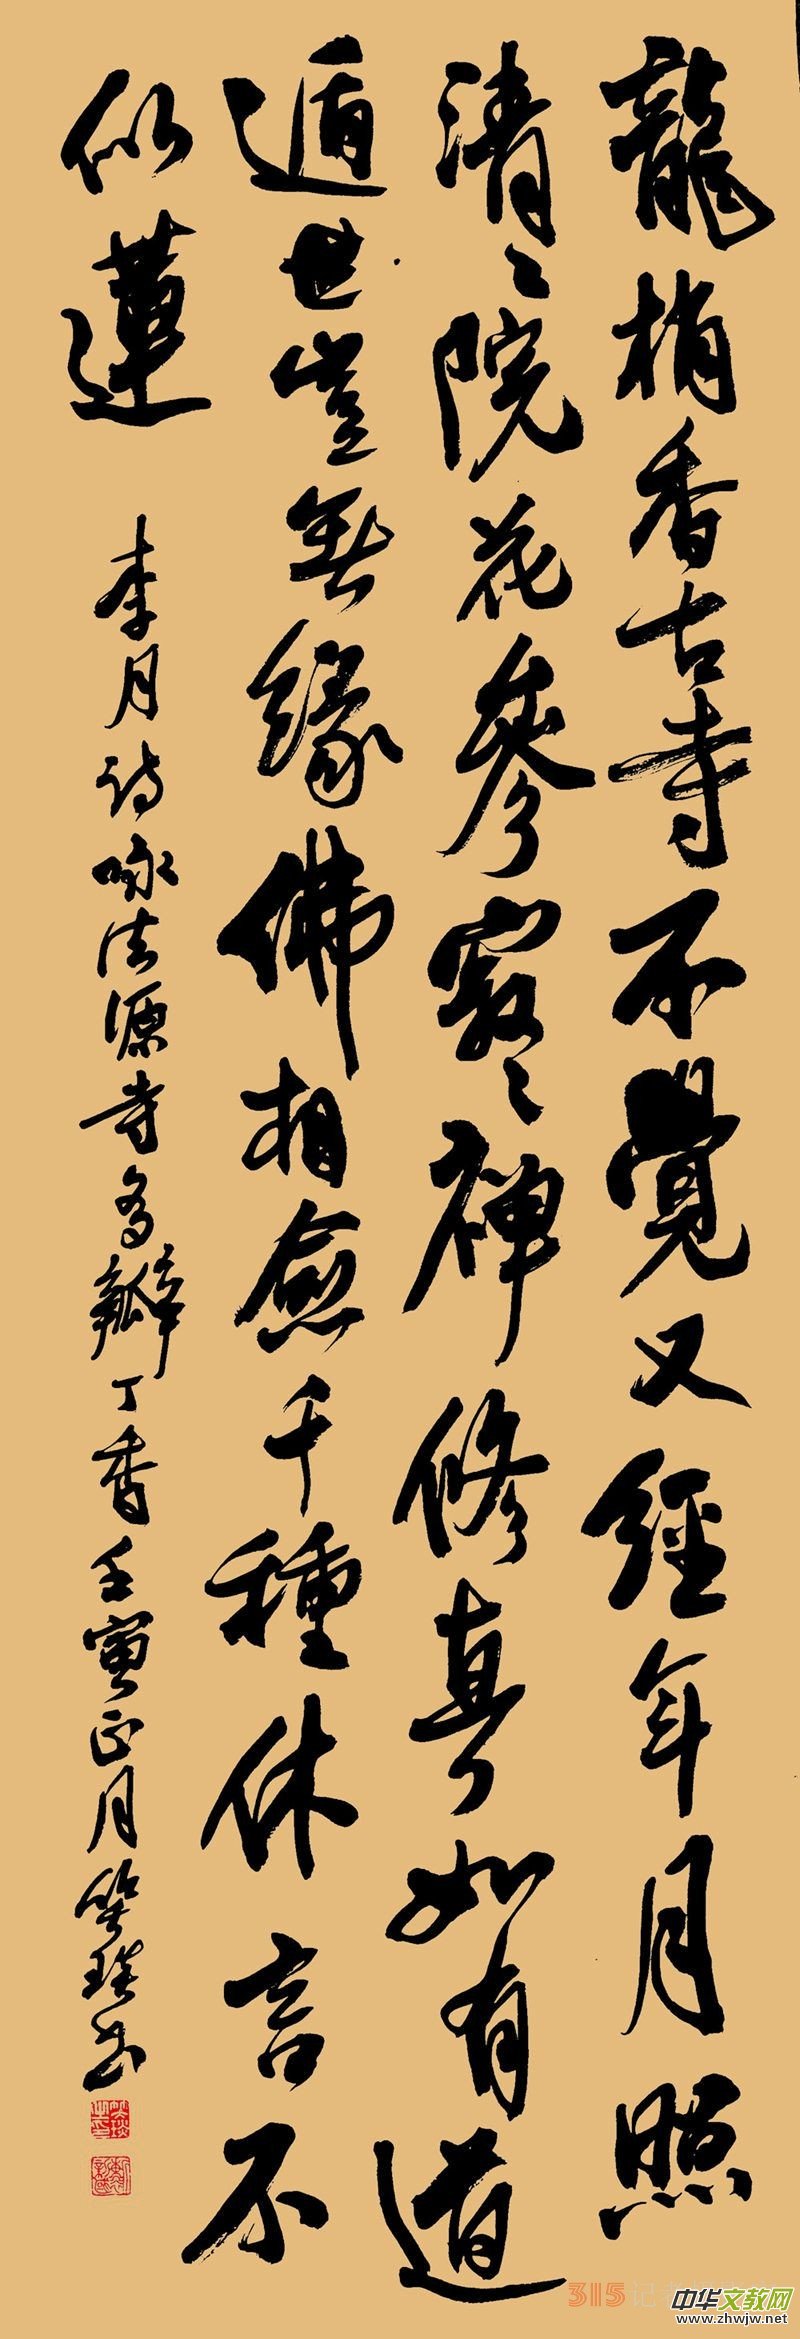 龍梢香古寺不覺又經年月照
清々院花參寂々禪修真如有道
遁世豈無緣佛相僉千種休言不
似蓮
李月詩咏法源寺多瓣丁香壬寅正月笑琰书
315记者
中华文教网
www.zhwjw.net